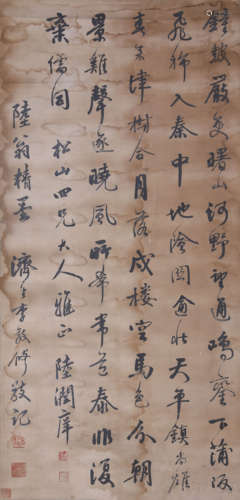 鐘鼓嚴更曙山河野望通鳴鑾下蒲坂
飛旆入秦中地險關愈壯天平鎮尚雄
春來津樹合月落戍樓空馬色分朝
景雞聲逐曉風所希常道泰非復
棄繻同 松山四兄大人雅正 陸潤庠
陸翁精墨 濟之李敦修敬記